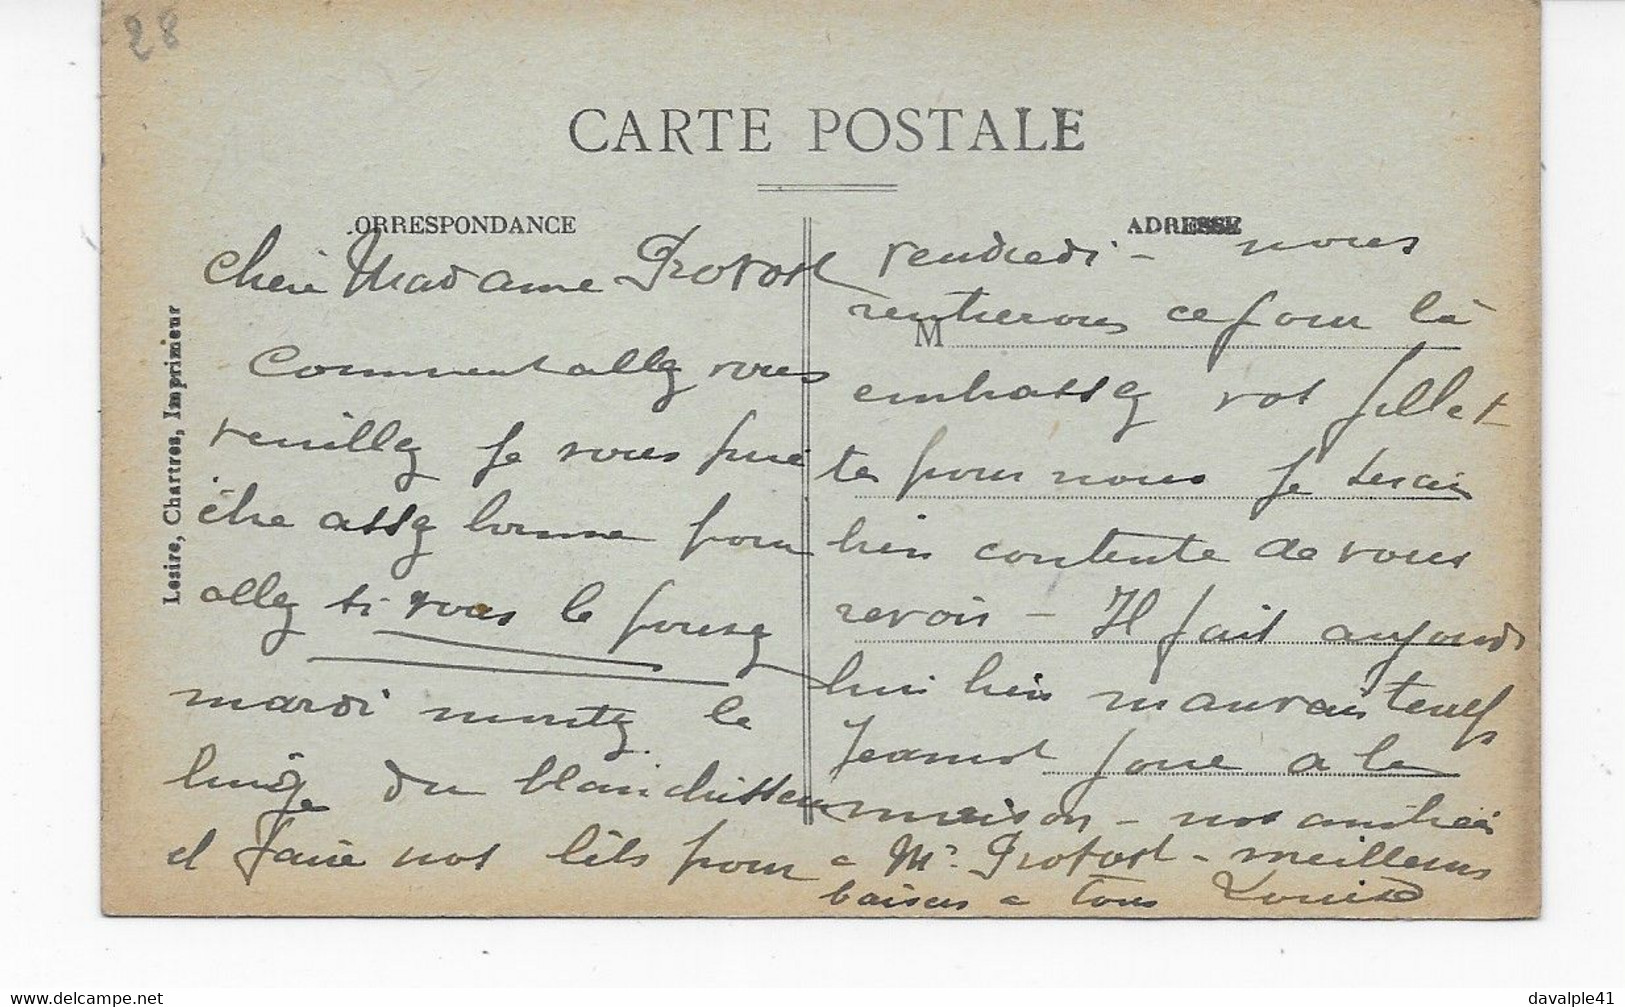 28
CARTE POSTALE
ORRESPONDANCE
ADRESSE
Lesire, Chartres, Imprimeur
Chere Madame Provost
Comment allez vous
veuillez je vous prie
être assez bonne pour
allez si vous le pouvez
mardi montez le
linge du blanchisseur
et faire nos lits pour
vendredi - nous
rentrerons ce jour là
M
embrassez vos fillet
tes pour nous je serai
bien contente de vous
revoir - Il fait aujourd
hui bien mauvais temps
Jeannot joue a la
maison - nos amitiés
a Mr Provost - meilleurs
baisers a tous Louise
davalple41